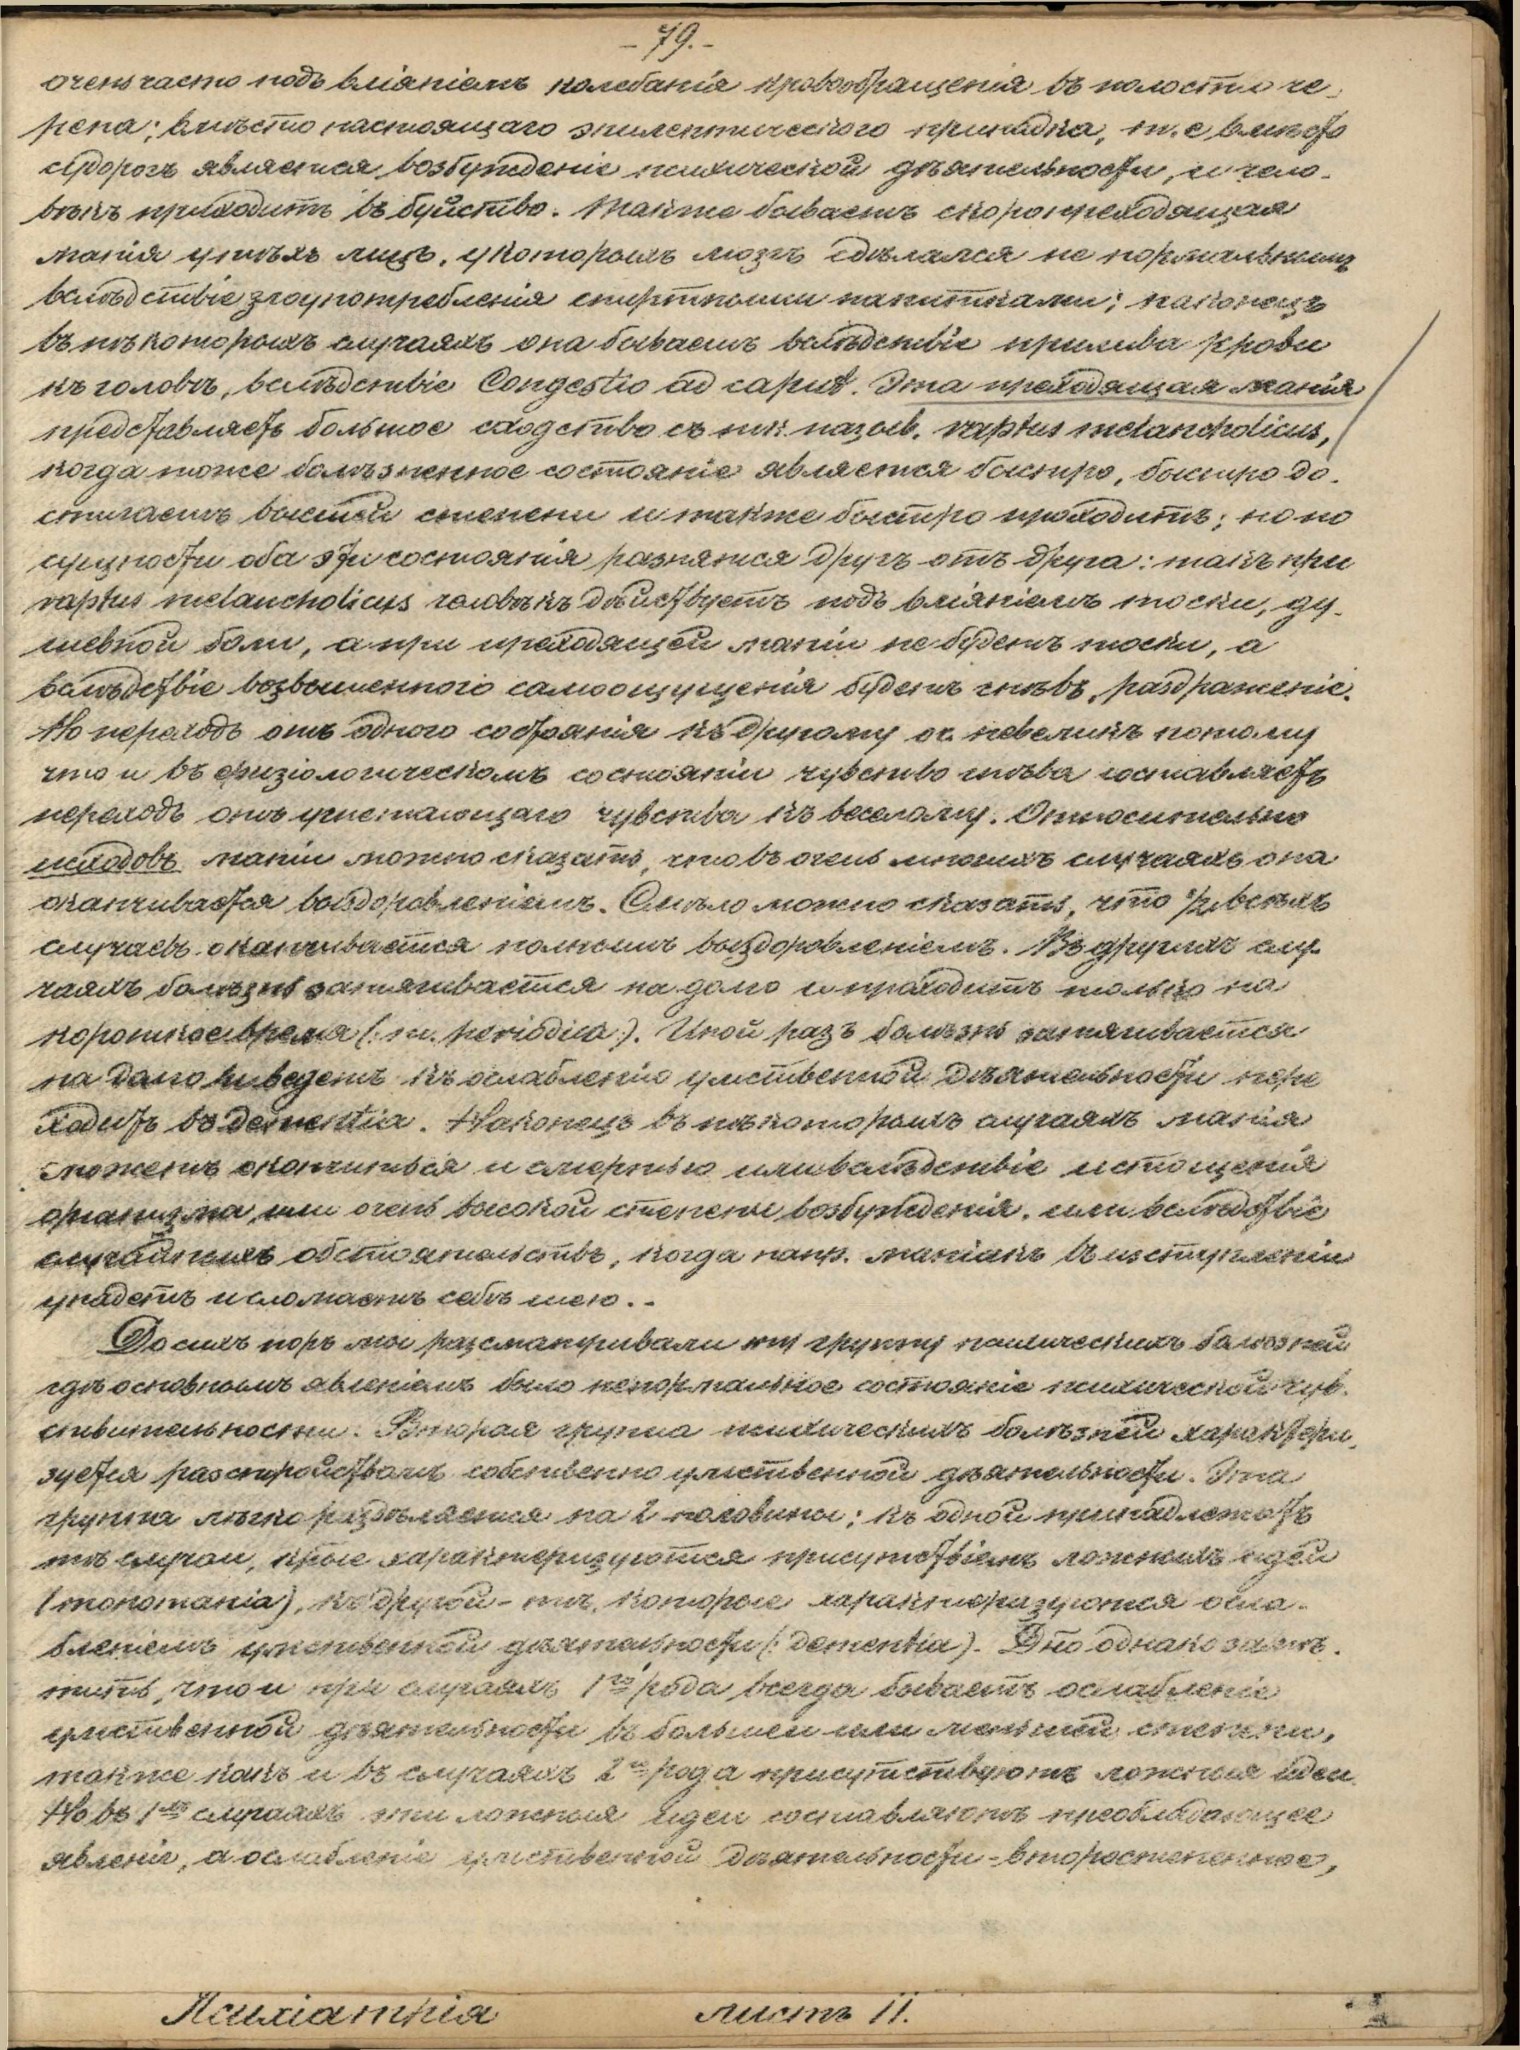 - 79. -
очень часто подъ вліяніемъ колебанія кровообращенія въ полости че-
репа; вмѣсто настоящаго эпилептического припадка, т. е вмѣсто
судорогъ является возбужденіе психической дѣятельности, и чело-
вѣкъ приходитъ въ буйство. Также бываетъ скоропреходящая
манія у тѣхъ лицъ, у которыхъ мозгъ сдѣлался не нормальнымъ
вслѣдствіе злоупотребленія спиртными напитками; наконецъ
въ нѣкоторыхъ случаяхъ она бываетъ вслѣдствіе прилива крови
къ головѣ, вслѣдствіе Congestio ad caput. Эта преходящая манія
представляетъ большое сходство съ так. назыв. raptus melancholicus,
когда тоже болѣзненное состояніе является быстро, быстро до-
стигаетъ высшей степени и также быстро проходитъ; но по
сущности оба эти состоянія разнятся другъ отъ друга: такъ при
raptus melancholicus человѣкъ дѣйствуетъ подъ вліяніемъ тоски, ду-
шевной боли, а при преходящей маніи не будетъ тоски, а
вслѣдствіе возвышенного самоощущенія будетъ гнѣвъ, раздраженіе.
Но переходъ отъ одного состоянія къ другому оч. невеликъ потому
что и въ физіологическомъ состояніи чувство гнѣва составляетъ
переходъ отъ угнетающаго чувства къ веселому. Относительно
исходовъ маніи можно сказать, что въ очень многихъ случаяхъ она
оканчивается выздоровленіемъ. Смѣло можно сказать, что всѣхъ
случаевъ оканчивается полнымъ выздоровленіемъ. Въ другихъ слу-
чаяхъ болѣзнь затягивается на долго и проходитъ только на
короткое время (: m. periodica :). Иной разъ болѣзнь затягивается
на долго и ведетъ къ ослабленію умственной дѣятельности пере
ходитъ въ dementia. Наконецъ въ нѣкоторыхъ случаяхъ манія
можетъ окончиться и смертью или вслѣдствіе истощенія
организма, или очень высокой степени возбужденія, или вслѣдствіе
случайныхъ обстоятельствъ, когда напр. маніакъ въ изступленіи
упадетъ и сломаетъ себѣ шею. -
До сихъ поръ мы разсматривали ту группу психическихъ болѣзней
гдѣ основнымъ явленіемъ было ненормальное состояніе психической чув-
ствительности. Вторая группа психическихъ болѣзней характери-
зуется разстройствомъ собственно умственной дѣятельности. Эта
группа легко раздѣляется на 2 половины; къ одной принадлежатъ
тѣ случаи, крые характеризуются присутствіемъ ложныхъ идей
(monomania), къ другой - тѣ, которые характеризуются осла-
бленіемъ умственной дѣятельности (: dementia). Дно однако замѣ-
тить, что и при случаяхъ 1го рода всегда бываетъ ослабленіе
умственной дѣятельности въ большей или меньшей степени,
также какъ и въ случаяхъ 2го рода присутствуютъ ложныя идеи.
Но въ 1хъ случаяхъ эти ложныя идеи составляютъ преобладающее
явленіе, а ослабленіе умственной дѣятельности - второстепенное,
Психіатрія листъ 11.